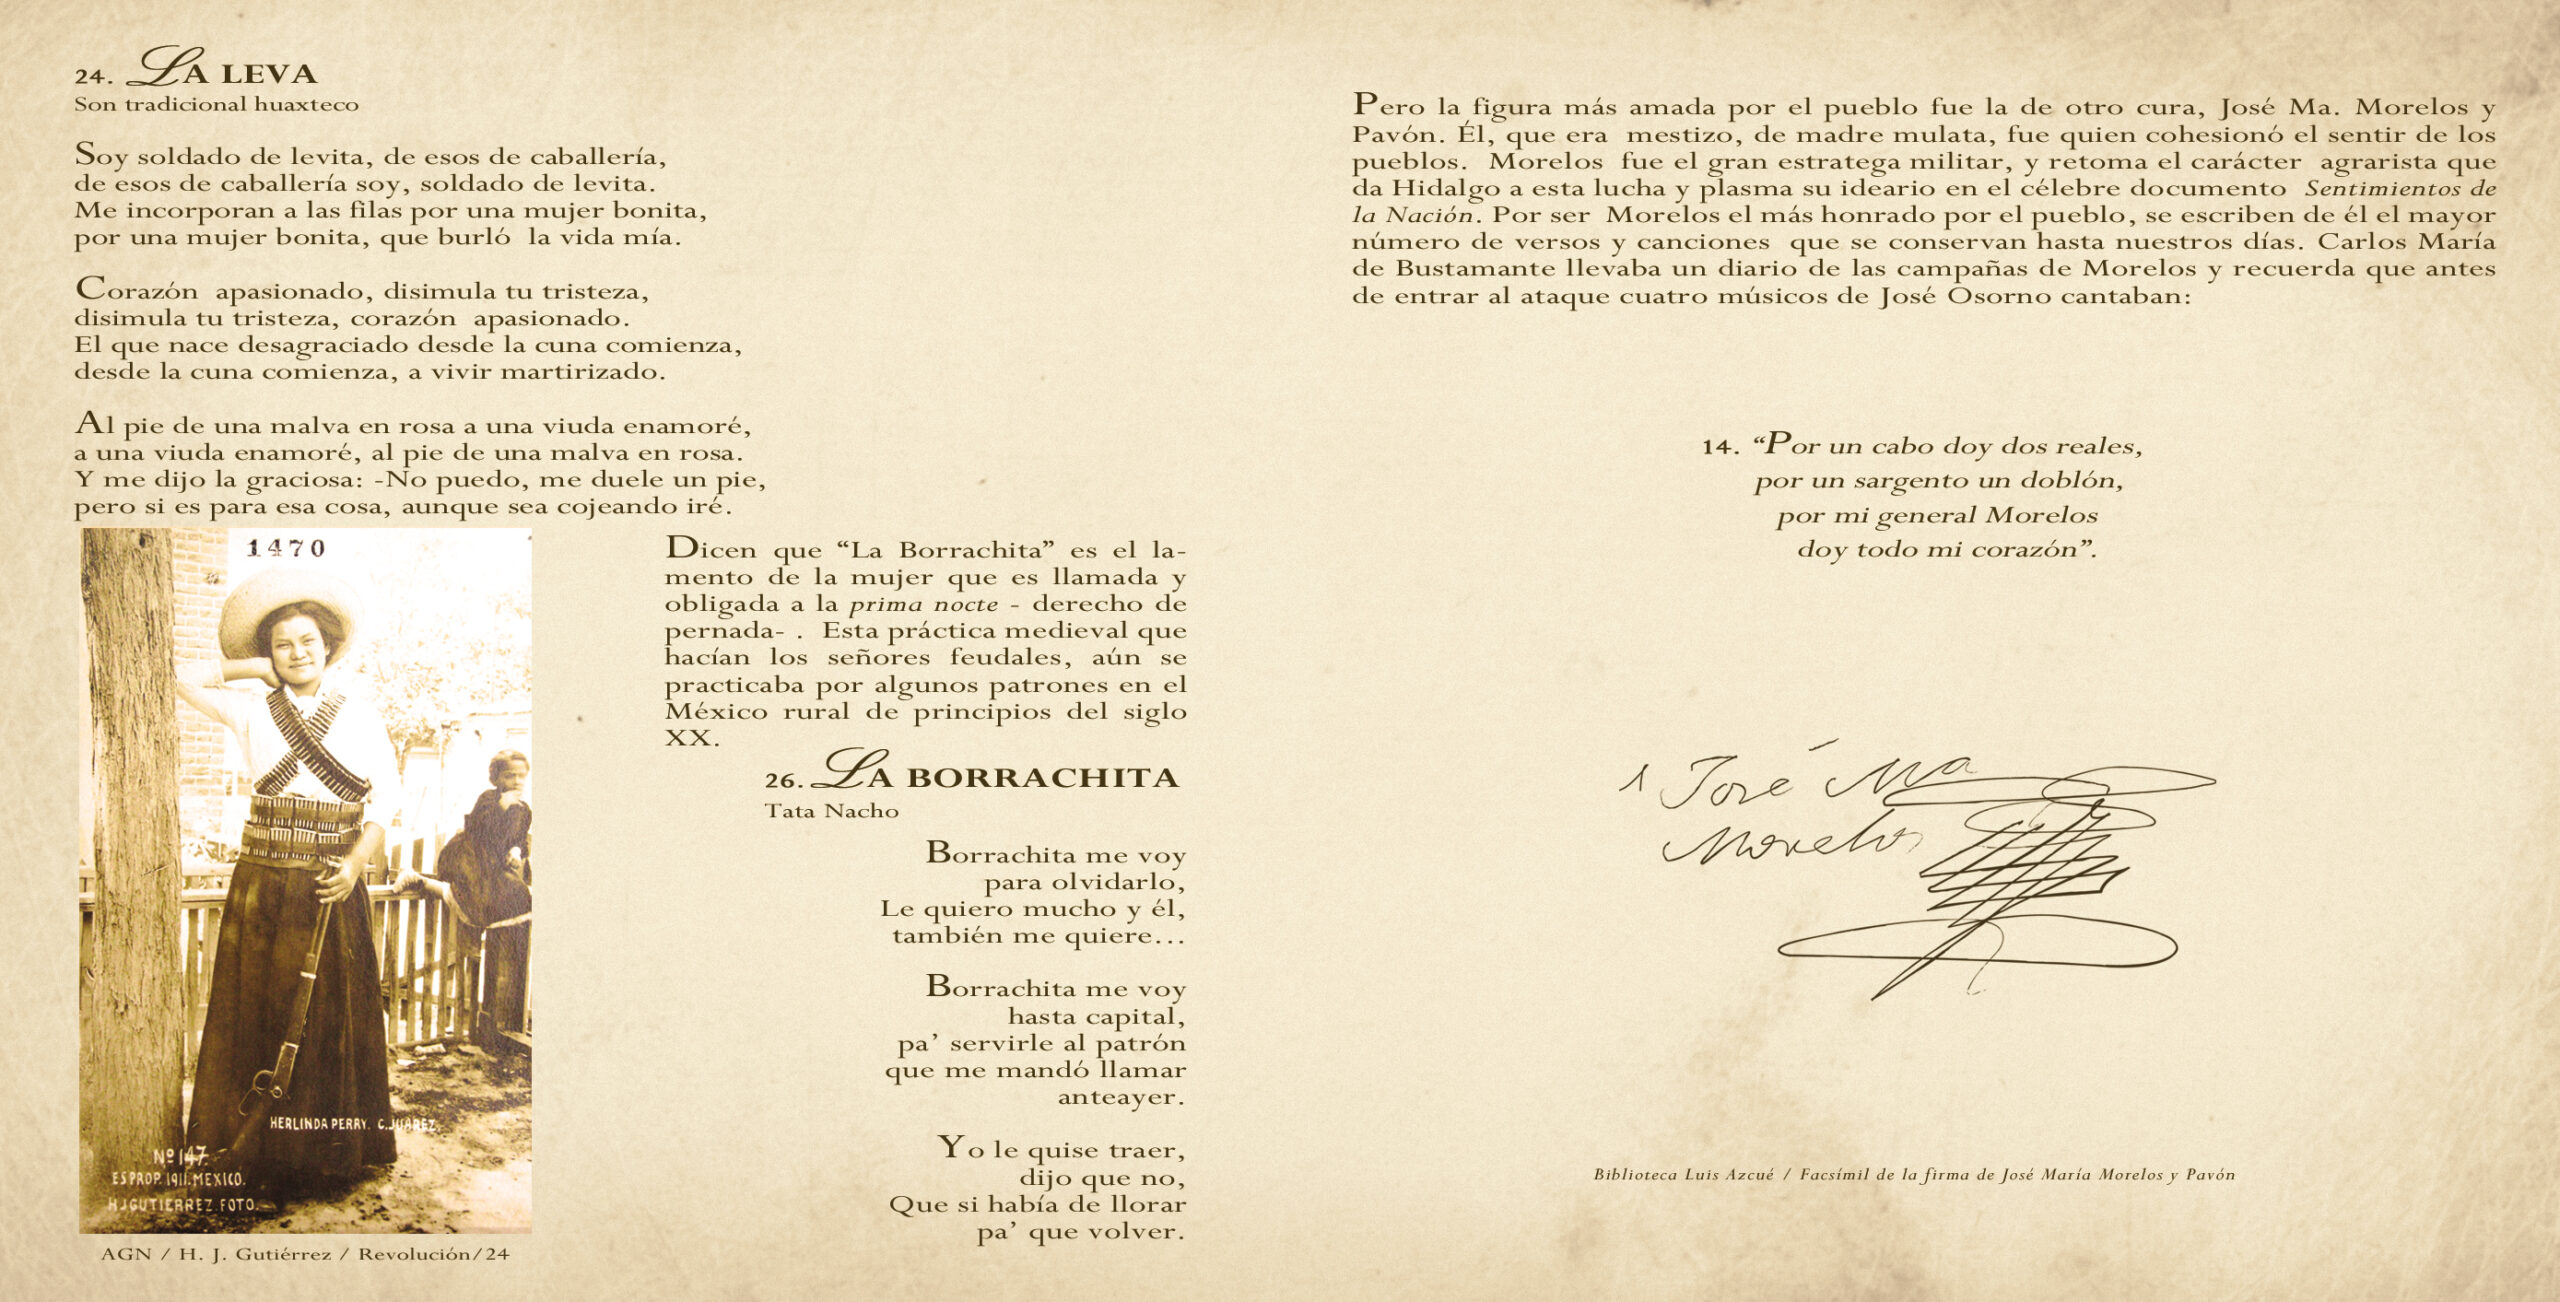 24. LA LEVA
Son tradicional huaxteco
Soy soldado de levita, de esos de caballería,
de esos de caballería soy, soldado de levita.
Me incorporan a las filas por una mujer bonita,
por una mujer bonita, que burló la vida mía.
Corazón apasionado, disimula tu tristeza,
disimula tu tristeza, corazón apasionado.
El que nace desagraciado desde la cuna comienza,
desde la cuna comienza, a vivir martirizado.
Al pie de una malva en rosa a una viuda enamoré,
a una viuda enamoré, al pie de una malva en rosa.
Y me dijo la graciosa: -No puedo, me duele un pie,
pero si es para esa cosa, aunque sea cojeando iré.
1470
HERLINDA PERRY. C. JUAREZ.
Nº 147.
ES PROP. 1911. MEXICO.
H.J. GUTIERREZ. FOTO.
AGN / H. J. Gutiérrez / Revolución/24
Dicen que “La Borrachita” es el la-
mento de la mujer que es llamada y
obligada a la prima nocte - derecho de
pernada- . Esta práctica medieval que
hacían los señores feudales, aún se
practicaba por algunos patrones en el
México rural de principios del siglo
XX.
26. LA BORRACHITA
Tata Nacho
Borrachita me voy
para olvidarlo,
Le quiero mucho y él,
también me quiere...
Borrachita me voy
hasta capital,
pa’ servirle al patrón
que me mandó llamar
anteayer.
Yo le quise traer,
dijo que no,
Que si había de llorar
pa’ que volver.
Pero la figura más amada por el pueblo fue la de otro cura, José Ma. Morelos y
Pavón. Él, que era mestizo, de madre mulata, fue quien cohesionó el sentir de los
pueblos. Morelos fue el gran estratega militar, y retoma el carácter agrarista que
da Hidalgo a esta lucha y plasma su ideario en el célebre documento Sentimientos de
la Nación. Por ser Morelos el más honrado por el pueblo, se escriben de él el mayor
número de versos y canciones que se conservan hasta nuestros días. Carlos María
de Bustamante llevaba un diario de las campañas de Morelos y recuerda que antes
de entrar al ataque cuatro músicos de José Osorno cantaban:
14. “Por un cabo doy dos reales,
por un sargento un doblón,
por mi general Morelos
doy todo mi corazón”.
José Ma
Morelos
Biblioteca Luis Azcué / Facsímil de la firma de José María Morelos y Pavón